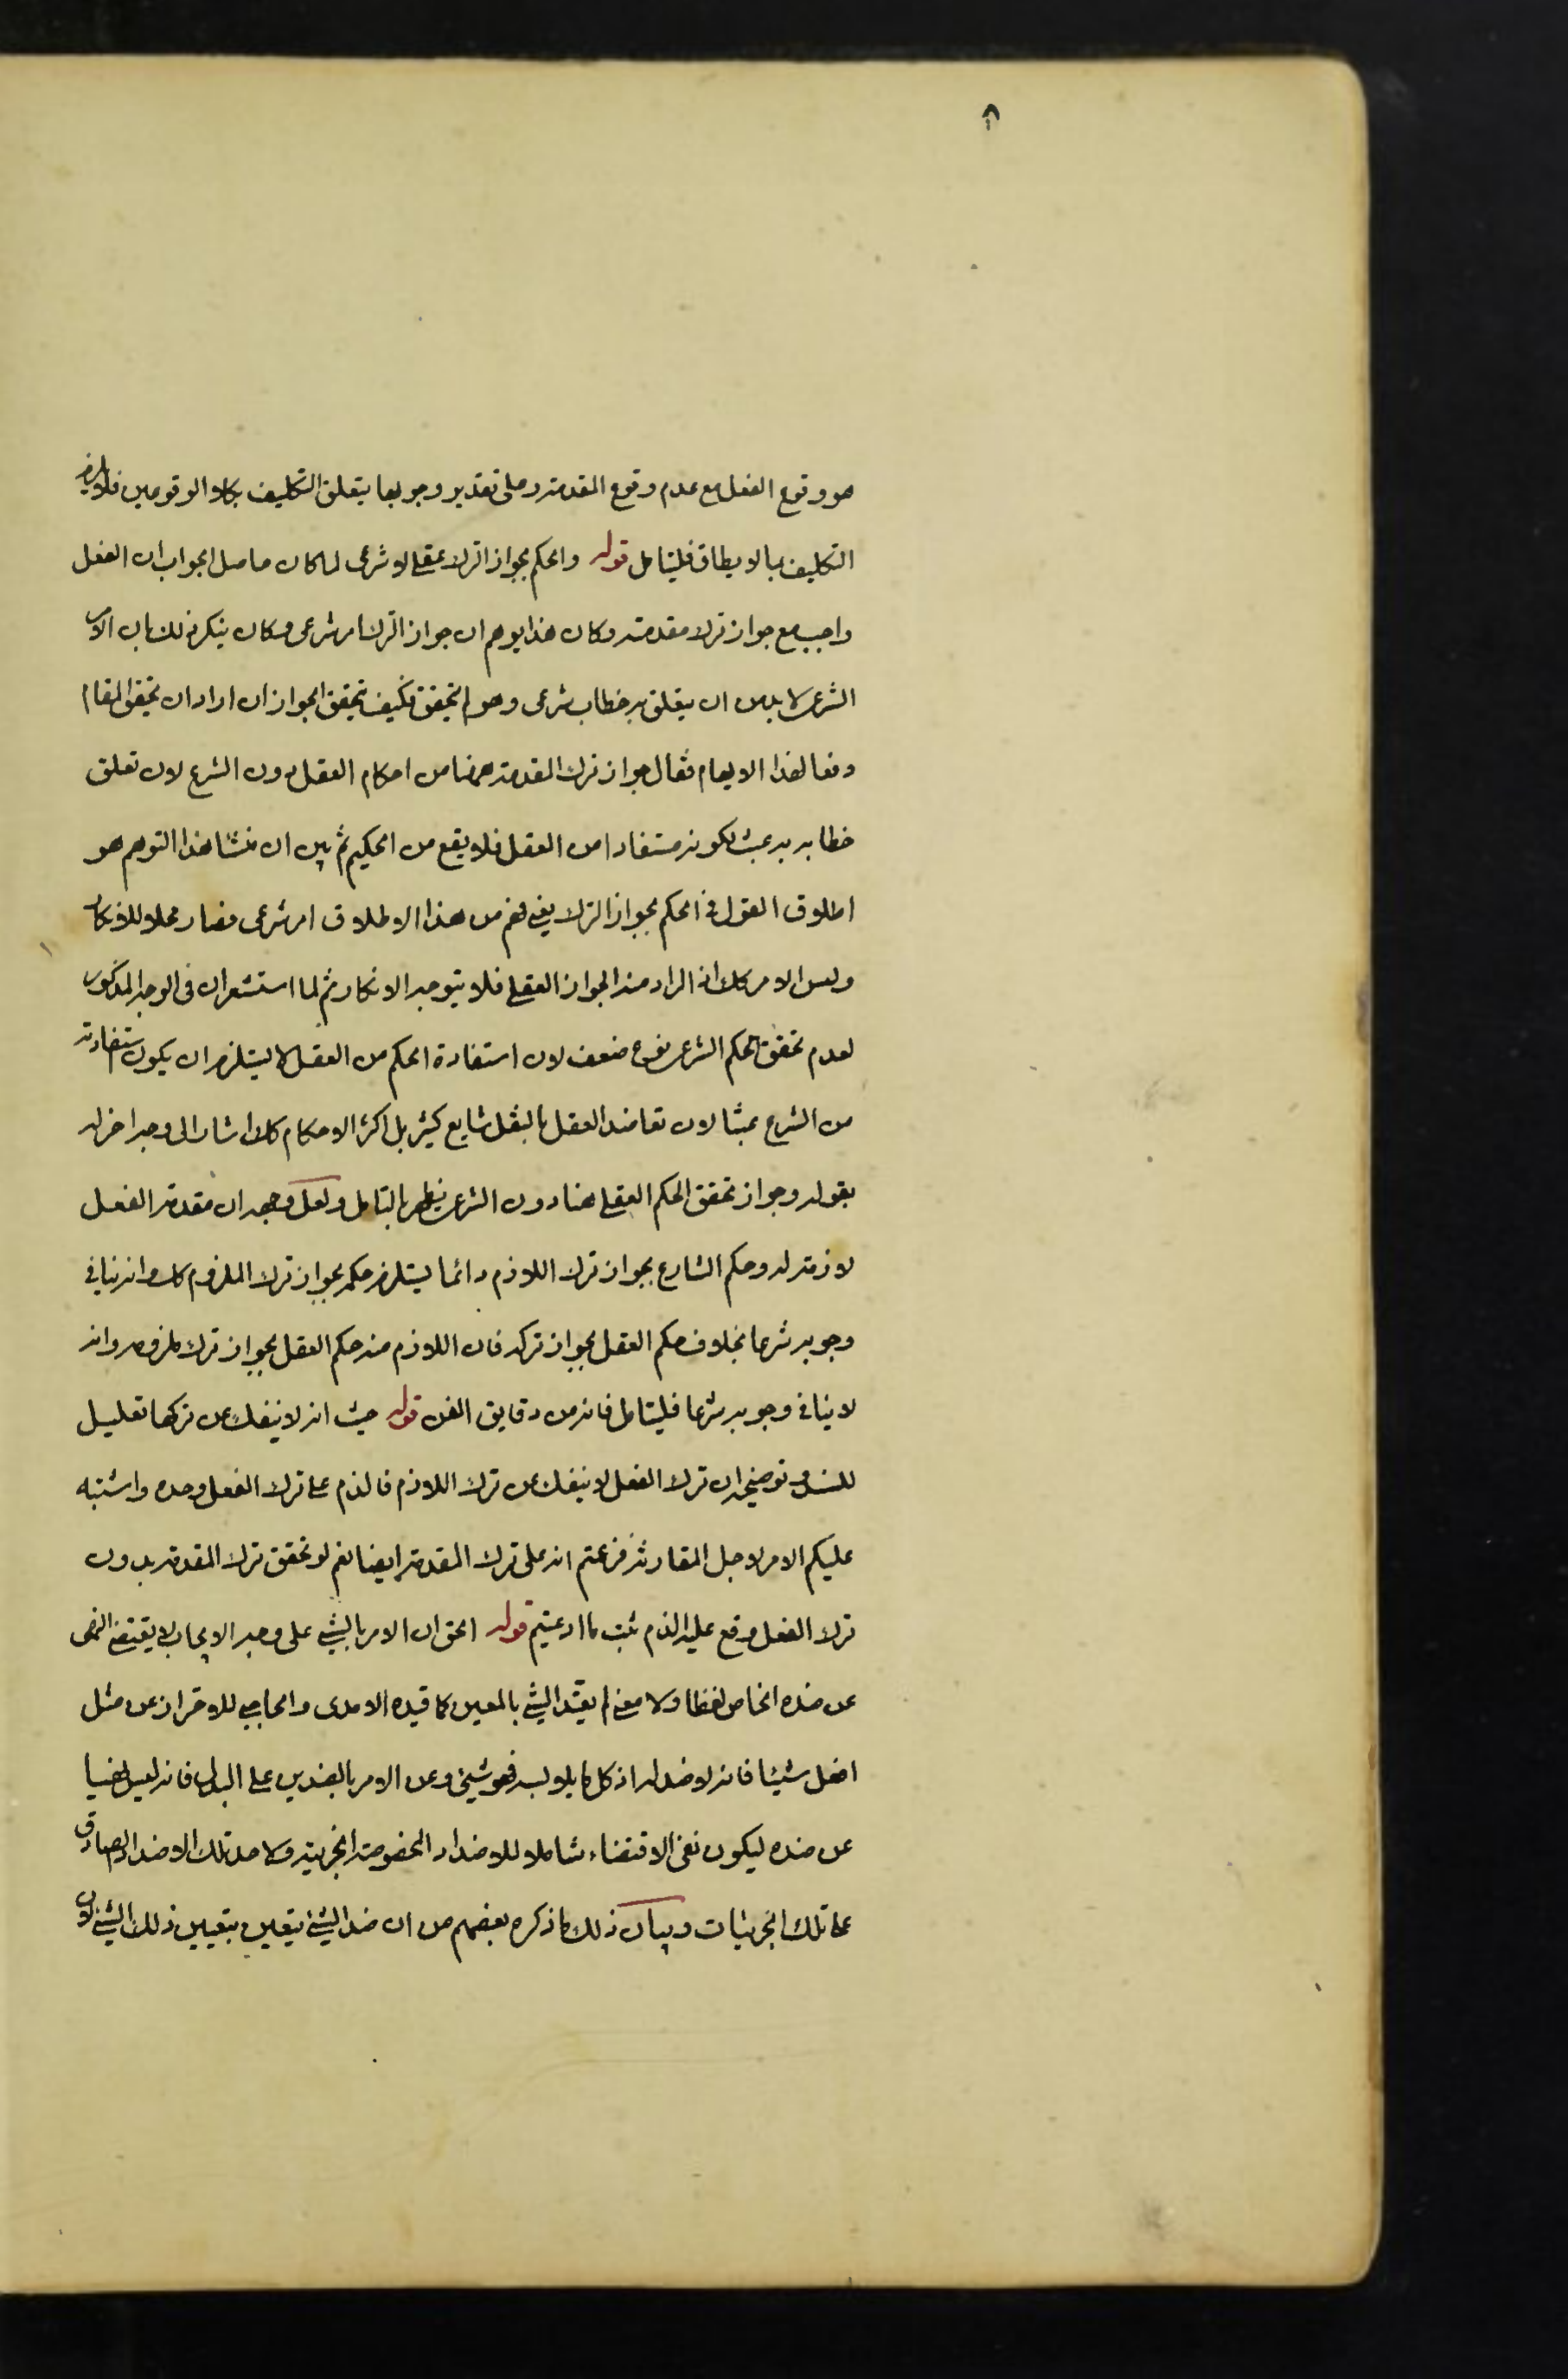 هو وقوع الفعل مع عدم وقوع المقدمة وعلى تقدير وجوبها يتعلق التكليف بكلا الوقوعين فلا يلزم
التكليف بما لا يطاق فليتامل قوله والحكم بجواز الترك عقلي لا شرعي لما كان حاصل الجواب ان الفعل
واجب مع جواز ترك مقدمته وكان هذا يوهم ان جواز الترك امر شرعي وكان ينكر ذلك بان الامر
الشرعي لا بد من ان يتعلق به خطاب شرعي وهو لم يتحقق فكيف يتحقق الجواز ان اراد ان تحقق المقام
دفعا لهذا الايهام فقال جواز ترك المقدمة ههنا من احكام العقل دون الشرع لان تعلق
خطابه به عبث لكونه مستفادا من العقل فلا يقع من الحكيم ثم بين ان منشا هذا التوهم هو
اطلاق القول في الحكم بجواز الترك يعني فهم من هذا الاطلاق امر شرعي فصار محلا للانكار
وليس الامر كك اذ المراد منه الجواز العقلي فلا يتوجه الانكار ثم لما استشعر ان في الوجه المذكور
لعدم تحقق الحكم الشرعي نوع ضعف لان استفادة الحكم من العقل لا يستلزم ان يكون استفادته
من الشرع عبثا لان تعاضد العقل بالنقل شايع كثير بل اكثر الاحكام كك اشار الى وجه اخر له
بقوله وجواز تحقق الحكم العقلي هنا دون الشرعي يظهر بالتامل ولعل وجهه ان مقدمة الفعل
لازمة له وحكم الشارع بجواز ترك اللازم دائما يستلزم حكمه بجواز ترك الملزوم كك وانه ينافي
وجوبه شرعا بخلاف حكم العقل بجواز تركه فان اللازم منه حكم العقل بجواز ترك ملزومه وانه
لا ينافي وجوبه شرعا فليتامل فانه من دقايق الفن قوله حيث انه لا ينفك عن تركها تعليل
للنسق وتوضيحه ان ترك الفعل لا ينفك عن ترك اللازم فالذم على ترك الفعل وحده واشتبه
عليكم الامر لاجل المقارنة فزعمتم انه على ترك المقدمة ايضا نعم لو تحقق ترك المقدمة بدون
ترك الفعل ووقع عليه الذم ثبت ما ادعيتم قوله الحق ان الامر بالشيء على وجه الايجاب لا يقتضي النهي
عن ضده الخاص لفظا ولا معنى لم يقيد الشيء بالمعين كما قيده الامدي والحاجبي للاحتراز عن مثل
افعل شيئا فانه لا ضد له اذ كل ما يلابسه فهو شيء وعن الامر بالضدين على البدل فانه ليس نهيا
عن ضده ليكون نفي الاقتضاء شاملا للاضداد المخصوصة الجزئية ولاحد تلك الاضداد الصادق
على تلك الجزئيات وبيان ذلك ما ذكره بعضهم من ان ضد الشيء يتعين بتعيين ذلك الشيء لان